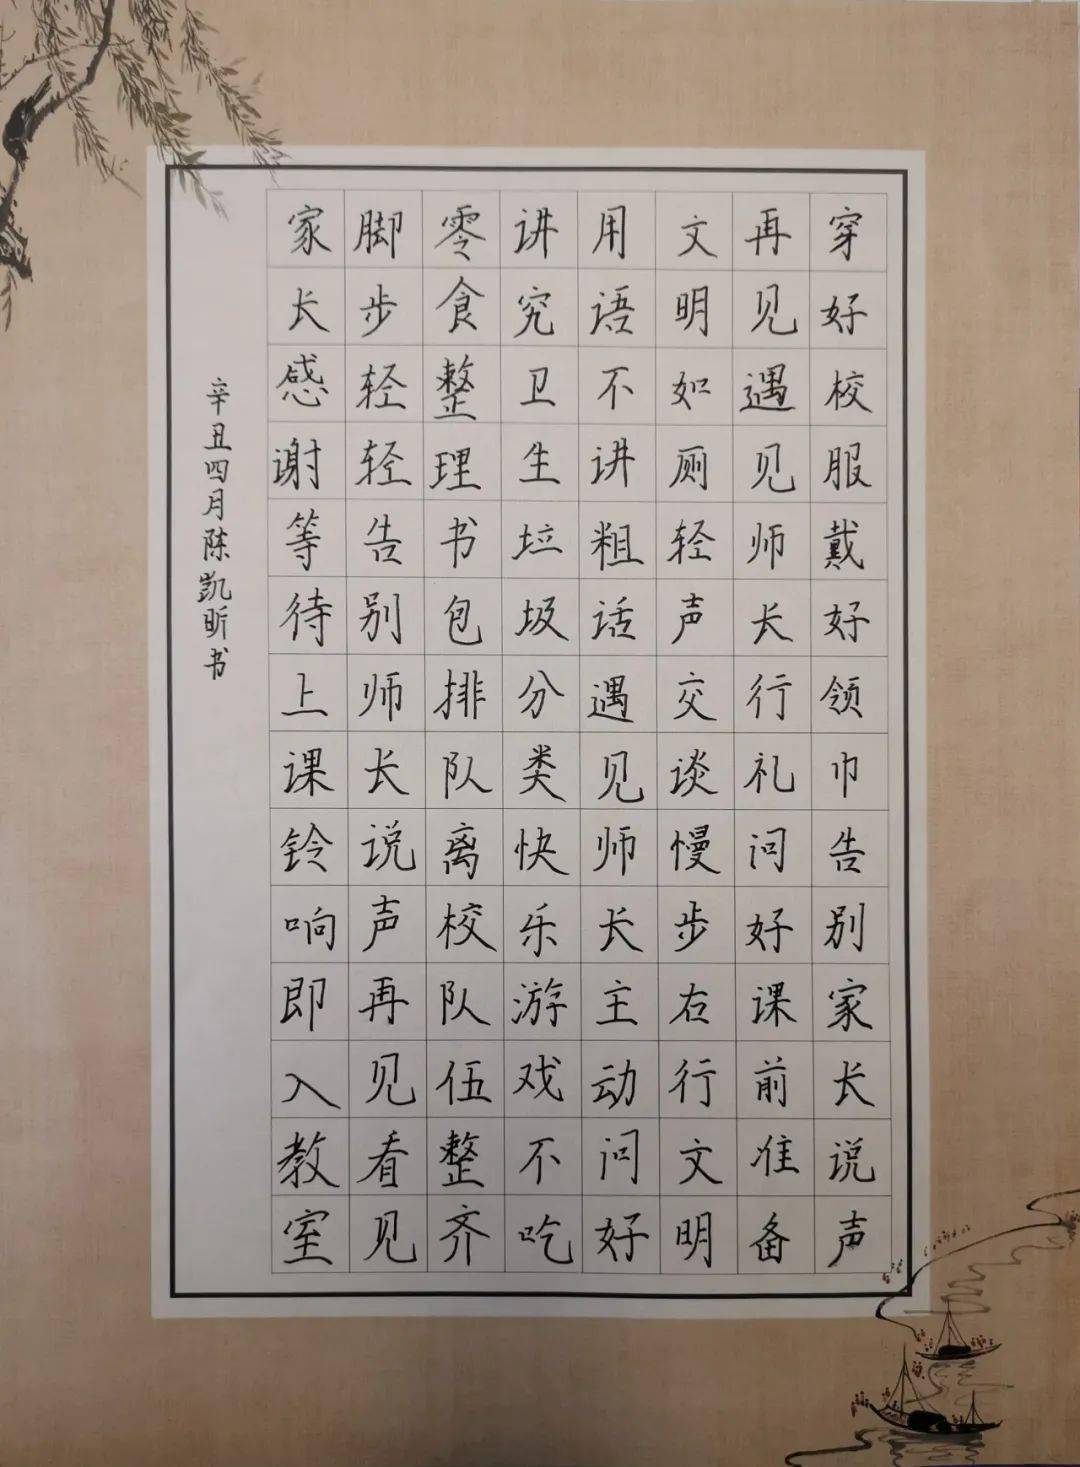 穿好校服戴好领巾告别家长说声
再见遇见师长行礼问好课前准备
文明如厕轻声交谈慢步右行文明
用语不讲粗话遇见师长主动问好
讲究卫生垃圾分类快乐游戏不吃
零食整理书包排队离校队伍整齐
脚步轻轻告别师长说声再见看见
家长感谢等待上课铃响即入教室
辛丑四月陈凯昕书